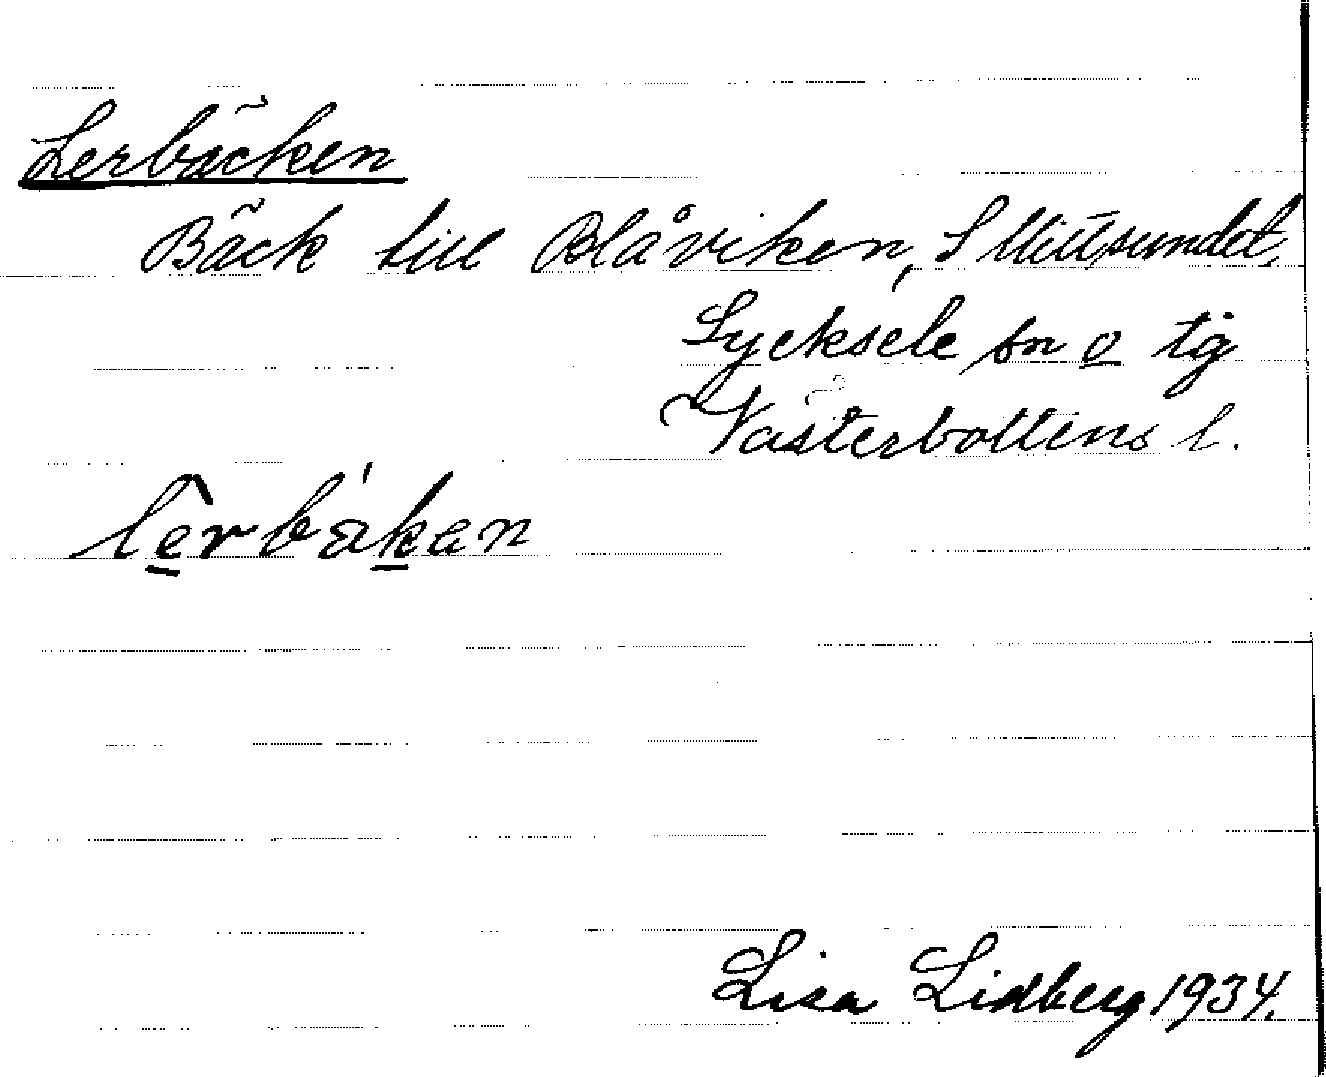 Lerbäcken
Bäck till Blåviken, S Mittsundet,
Lycksele sn o tg
Västerbottens l.
lerbäkan
Lisa Lidberg 1934.